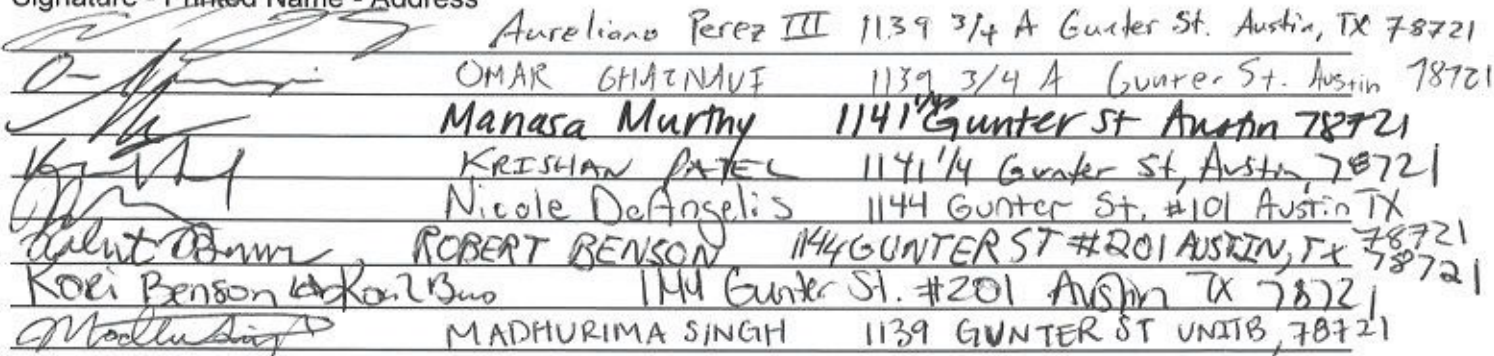 Signature - Printed Name - Address
Aureliano Perez III 1139 3/4 A Gunter St. Austin, TX 78721
OMAR GHAZNAVI 1139 3/4 A Gunter St. Austin 78721
Manasa Murthy 1141 1/4 Gunter St Austin 78721
KRISHAN PATEL 1141 1/4 Gunter St, Austin, 78721
Nicole DeAngelis 1144 Gunter St. #101 Austin TX 78721
ROBERT BENSON 1144 GUNTER ST #201 AUSTIN, TX 78721
Kori Benson 1144 Gunter St. #201 Austin TX 78721
MADHURIMA SINGH 1139 GUNTER ST UNITB, 78721